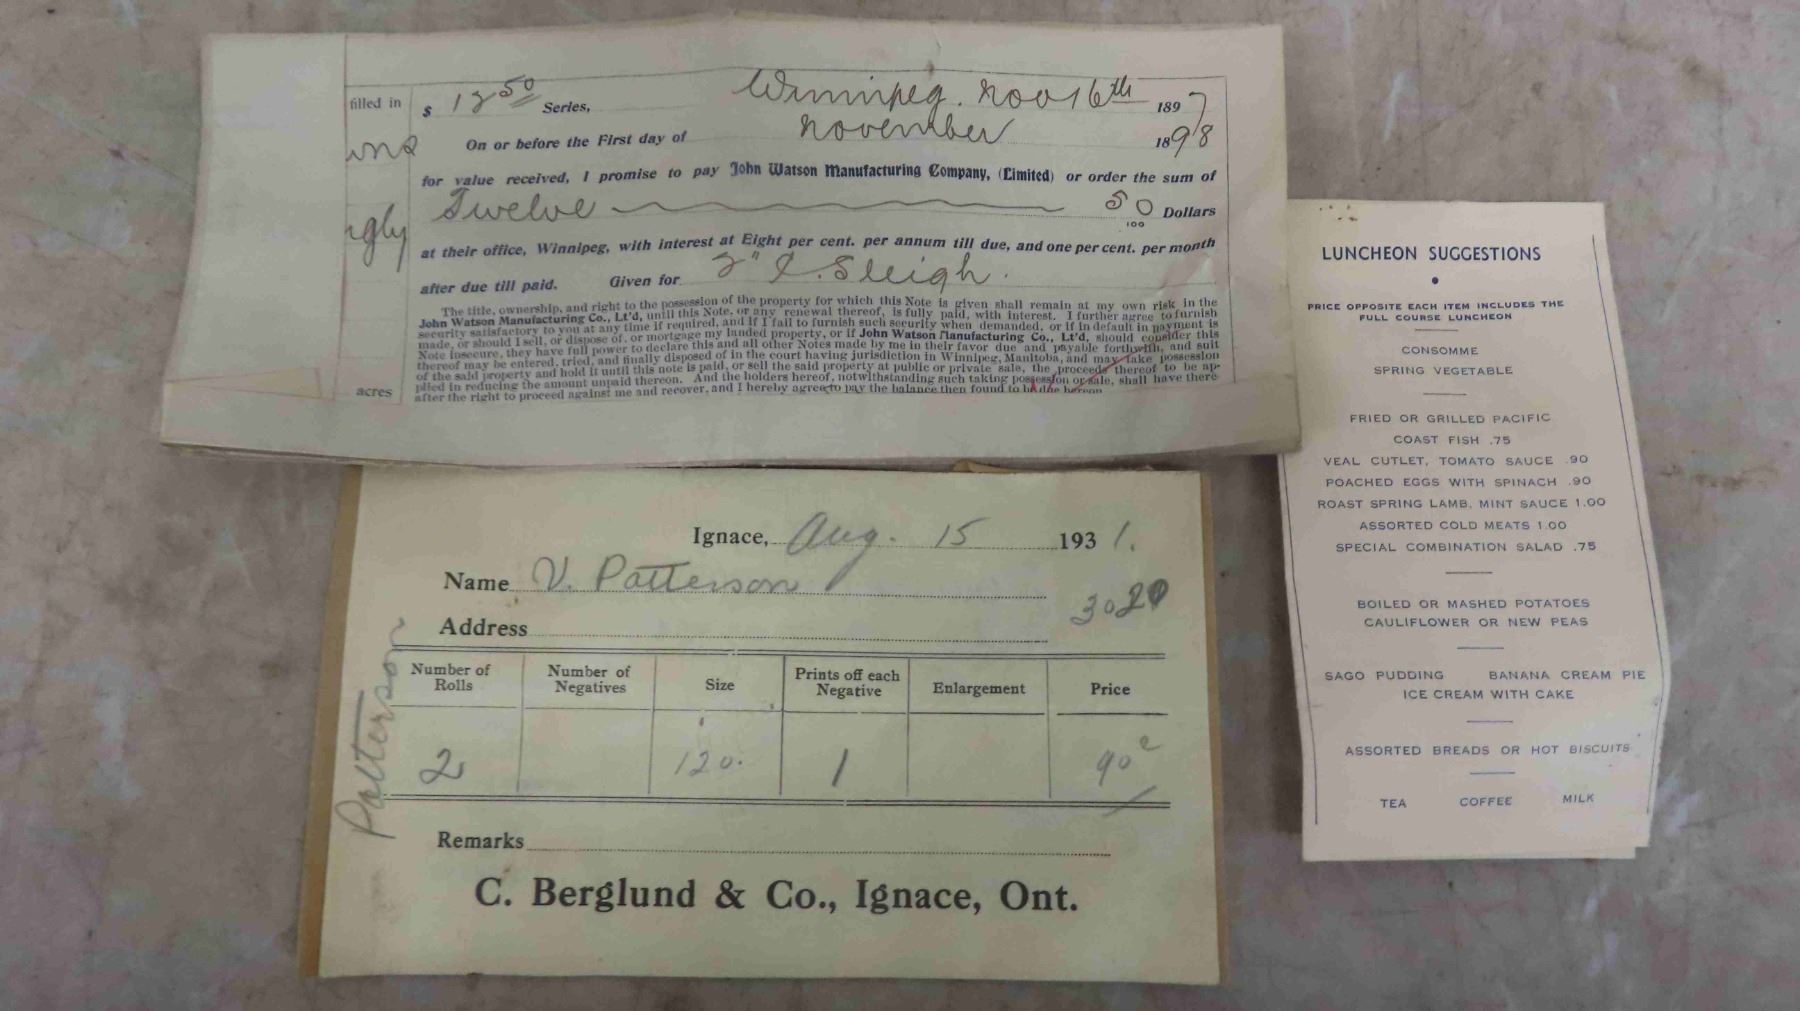 filled in
$ 12 50 Series, Winnipeg. Nov 16th 1897
On or before the First day of November 1898
for value received, I promise to pay John Watson Manufacturing Company, (Limited) or order the sum of
Twelve 50/100 Dollars
at their office, Winnipeg, with interest at Eight per cent. per annum till due, and one per cent. per month
after due till paid. Given for 2" S. Sleigh.
The title, ownership, and right to the possession of the property for which this Note is given shall remain at my own risk in the
John Watson Manufacturing Co., Lt'd, until this Note, or any renewal thereof, is fully paid, with interest. I further agree to furnish
security satisfactory to you at any time if required, and if I fail to furnish such security when demanded, or if in default in payment is
made, or should I sell, or dispose of, or mortgage my landed property, or if John Watson Manufacturing Co., Lt'd, should consider this
Note insecure, they have full power to declare this and all other Notes made by me in their favor due and payable forthwith, and suit
thereof may be entered, tried, and finally disposed of in the court having jurisdiction in Winnipeg, Manitoba, and may take possession
of the said property and hold it until this note is paid, or sell the said property at public or private sale, the proceeds thereof to be ap-
plied in reducing the amount unpaid thereon. And the holders hereof, notwithstanding such taking possession or sale, shall have there-
after the right to proceed against me and recover, and I hereby agree to pay the balance then found to be due hereon
acres
Ignace, Aug. 15 1931.
Name V. Patterson
3020
Address
Patterson
Number of Rolls
Number of Negatives
Size
Prints off each Negative
Enlargement
Price
2 120. 1 90c
Remarks
C. Berglund & Co., Ignace, Ont.
LUNCHEON SUGGESTIONS
PRICE OPPOSITE EACH ITEM INCLUDES THE
FULL COURSE LUNCHEON
CONSOMME
SPRING VEGETABLE
FRIED OR GRILLED PACIFIC
COAST FISH .75
VEAL CUTLET, TOMATO SAUCE .90
POACHED EGGS WITH SPINACH .90
ROAST SPRING LAMB, MINT SAUCE 1.00
ASSORTED COLD MEATS 1.00
SPECIAL COMBINATION SALAD .75
BOILED OR MASHED POTATOES
CAULIFLOWER OR NEW PEAS
SAGO PUDDING BANANA CREAM PIE
ICE CREAM WITH CAKE
ASSORTED BREADS OR HOT BISCUITS
TEA COFFEE MILK